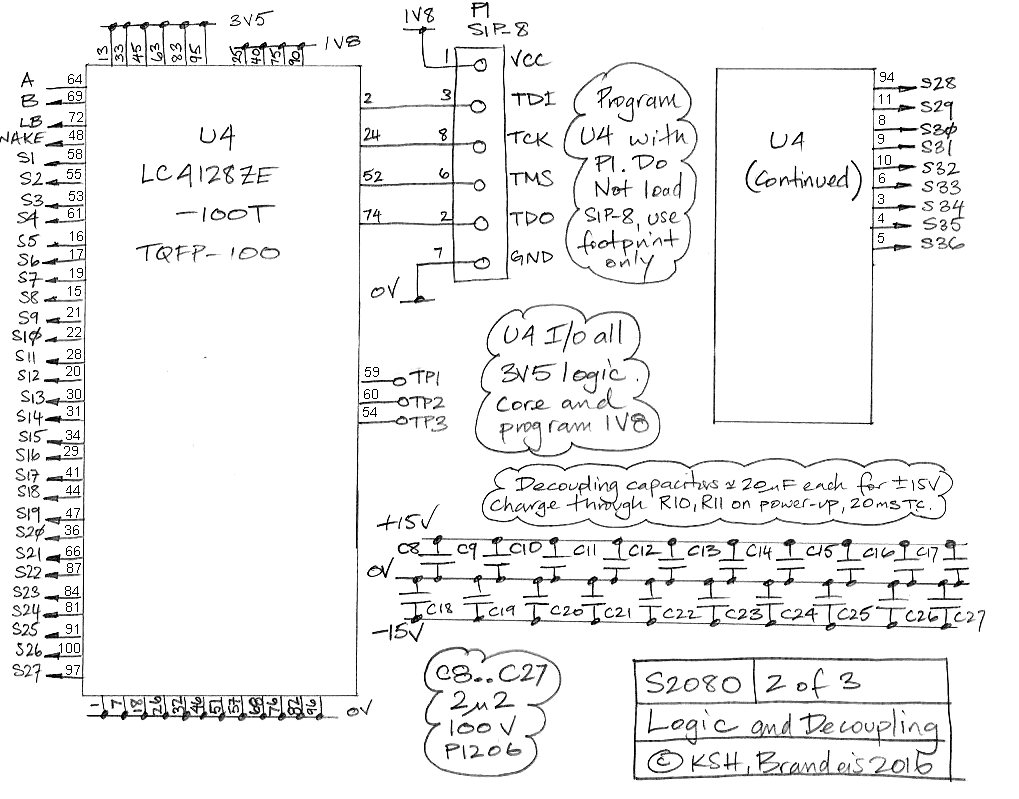 3V5
13 33 45 63 83 95
25 40 75 90
1V8
A 64
B 69
LB 72
WAKE 48
S1 58
S2 55
S3 53
S4 61
S5 16
S6 17
S7 19
S8 15
S9 21
S10 22
S11 28
S12 20
S13 30
S14 31
S15 34
S16 29
S17 41
S18 44
S19 47
S20 36
S21 66
S22 87
S23 84
S24 81
S25 91
S26 100
S27 97
U4
LC4128ZE
-100T
TQFP-100
1 7 18 26 32 46 51 57 68 76 82 96
0V
1V8
P1
SIP-8
1 VCC
2 3 TDI
24 8 TCK
52 6 TMS
74 2 TDO
7 GND
0V
59 TP1
60 TP2
54 TP3
Program
U4 with
P1. Do
Not load
SIP-8, use
footprint
only
U4
(Continued)
94 S28
11 S29
8 S30
9 S31
10 S32
6 S33
3 S34
4 S35
5 S36
U4 I/O all
3V5 logic.
Core and
program 1V8
Decoupling capacitors ≈ 20uF each for ±15V
Charge through R10, R11 on power-up, 20ms TC.
+15V
C8 C9 C10 C11 C12 C13 C14 C15 C16 C17
0V
C18 C19 C20 C21 C22 C23 C24 C25 C26 C27
-15V
C8..C27
2u2
100V
P1206
S2080 2 of 3
Logic and Decoupling
© KSH, Brandeis